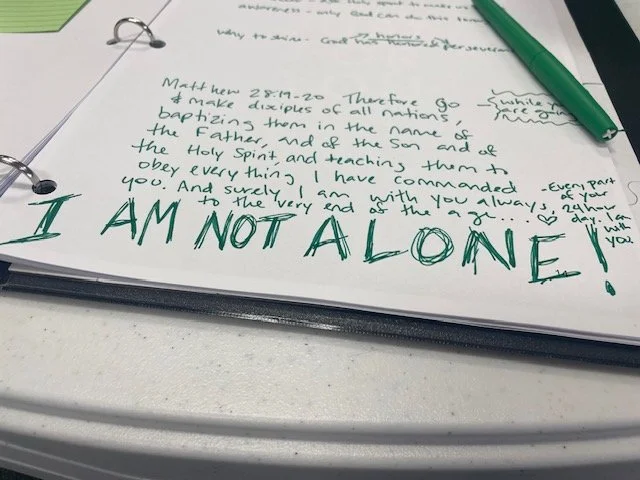 awareness - only God can do this
Why to shine - God has honored perseverance
honors
Matthew 28:19-20 Therefore Go
& make disciples of all nations,
baptizing them in the name of
the Father, and of the Son and of
the Holy Spirit, and teaching them to
obey everything I have commanded
you. And surely I am with you always,
to the very end of the age... ♡
while
are going
- Every part
of your
24 hour
day. I am
with
you
I AM NOT ALONE!